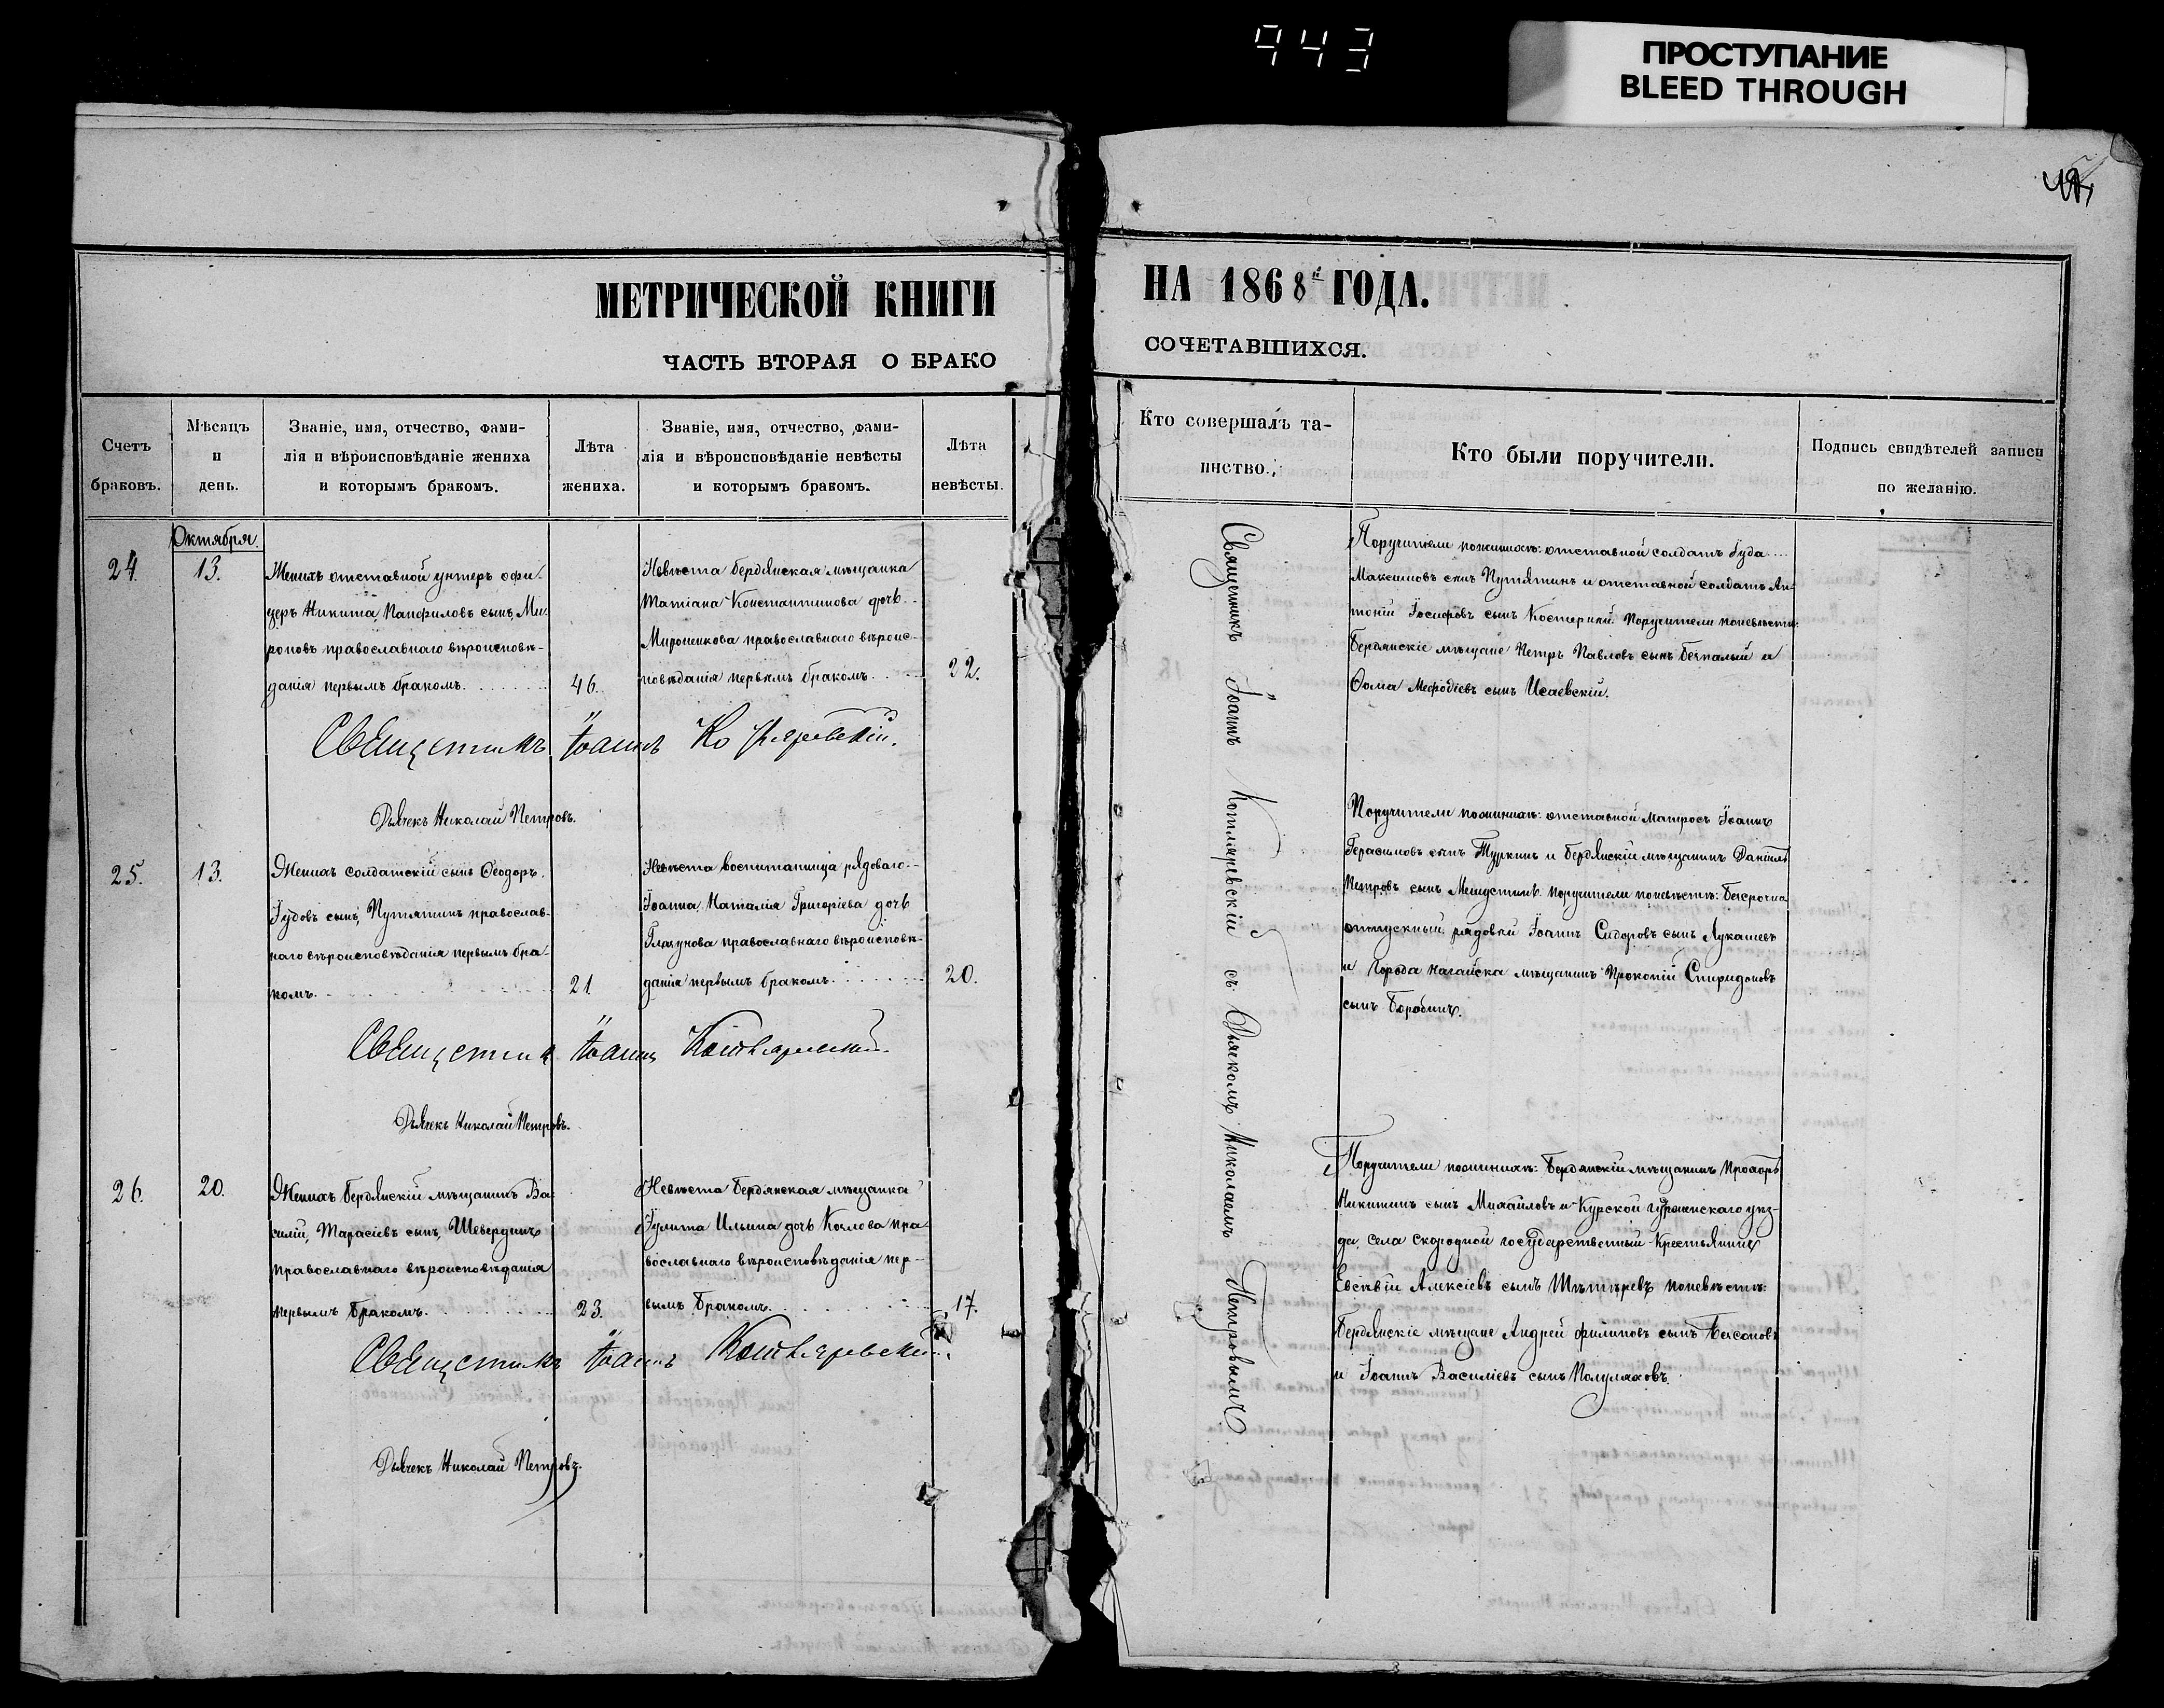 943
ПРОСТУПАНИЕ
BLEED THROUGH
МЕТРИЧЕСКОЙ КНИГИ
НА 1868й ГОДА.
ЧАСТЬ ВТОРАЯ О БРАКО
СОЧЕТАВШИХСЯ.
Счетъ
браковъ.
Мѣсяцъ
и
день.
Званіе, имя, отчество, фами-
лія и вѣроисповѣданіе жениха
и которымъ бракомъ.
Лѣта
жениха.
Званіе, имя, отчество, фами-
лія и вѣроисповѣданіе невѣсты
и которымъ бракомъ.
Лѣта
невѣсты.
Кто совершалъ та-
инство.
Кто были поручители.
Подпись свидѣтелей записи
по желанію.
Октября.
24.
13.
Женихъ отставной унтеръ офи-
церъ Никита, Панфиловъ сынъ, Ми-
роновъ православнаго вѣроисповѣ-
данія первымъ бракомъ.
46.
Невѣста Бердянская мѣщанка
Татіана Константинова дочь
Мироненкова православнаго вѣроис-
повѣданія первымъ бракомъ.
22.
Священникъ Іоаннъ Котляревскій.
Дьячекъ Николай Петровъ.
25.
13.
Женихъ солдатскій сынъ Ѳеодоръ,
Іудовъ сынъ, Путятинъ православ-
наго вѣроисповѣданія первымъ бра-
комъ.
21
Невѣста воспитанница рядоваго
Іоанна, Наталія Григоріева дочь
Глазунова православнаго вѣроисповѣ-
данія первымъ бракомъ.
20.
Священник Іоаннъ Котляревскій
Дьячекъ Николай Петровъ.
26.
20.
Женихъ Бердянскій мѣщанинъ Ва-
силій, Тарасіевъ сынъ, Шевердинъ
православнаго вѣроисповѣданія
первымъ бракомъ.
23.
Невѣста Бердянская мѣщанка
Іулита Ильина дочь Козлова пра-
вославнаго вѣроисповѣданія пер-
вымъ бракомъ.
17.
Священникъ Іоаннъ Котляревскій.
Дьячекъ Николай Петровъ.
Священникъ Іоаннъ Котляревскій съ Дьячкомъ Николаемъ Петровымъ
Поручители по женихѣ: отставной солдатъ Іуда
Максимовъ сынъ Путятинъ и отставной солдатъ Ан-
тоній Іосифовъ сынъ Костерний. Поручители по невѣстѣ:
Бердянскіе мѣщане Петръ Павловъ сынъ Безпалый и
Ѳома Меѳодіевъ сынъ Исаевскій.
Поручители по женихѣ: отставной матросъ Іоаннъ
Герасимовъ сынъ Туркинъ и Бердянскій мѣщанинъ Даніилъ
Петровъ сынъ Мишустинъ. поручители по невѣстѣ: Безсрочно
отпускный рядовой Іоаннъ Сидоровъ сынъ Лукашевъ
и города Нагайска мѣщанинъ Прокопій Спиридоновъ
сынъ Борабинъ.
Поручители по женихѣ: Бердянскій мѣщанинъ Прохоръ
Никитинъ сынъ Михайловъ и Курской губерніи уѣз-
да, села Скородной государственный крестьянинъ
Алексіевъ сынъ по невѣстѣ:
Бердянскіе мѣщане Андрей Филиповъ сынъ Безсоновъ
и Іоаннъ Василіевъ сынъ Полуляховъ.